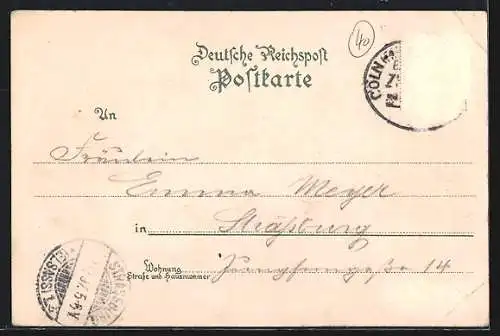 40
Deutsche Reichspost
Postkarte
CÖLN
An
Fräulein
Emma Meyer
in Straßburg
Wohnung
Straße und Hausnummer
14